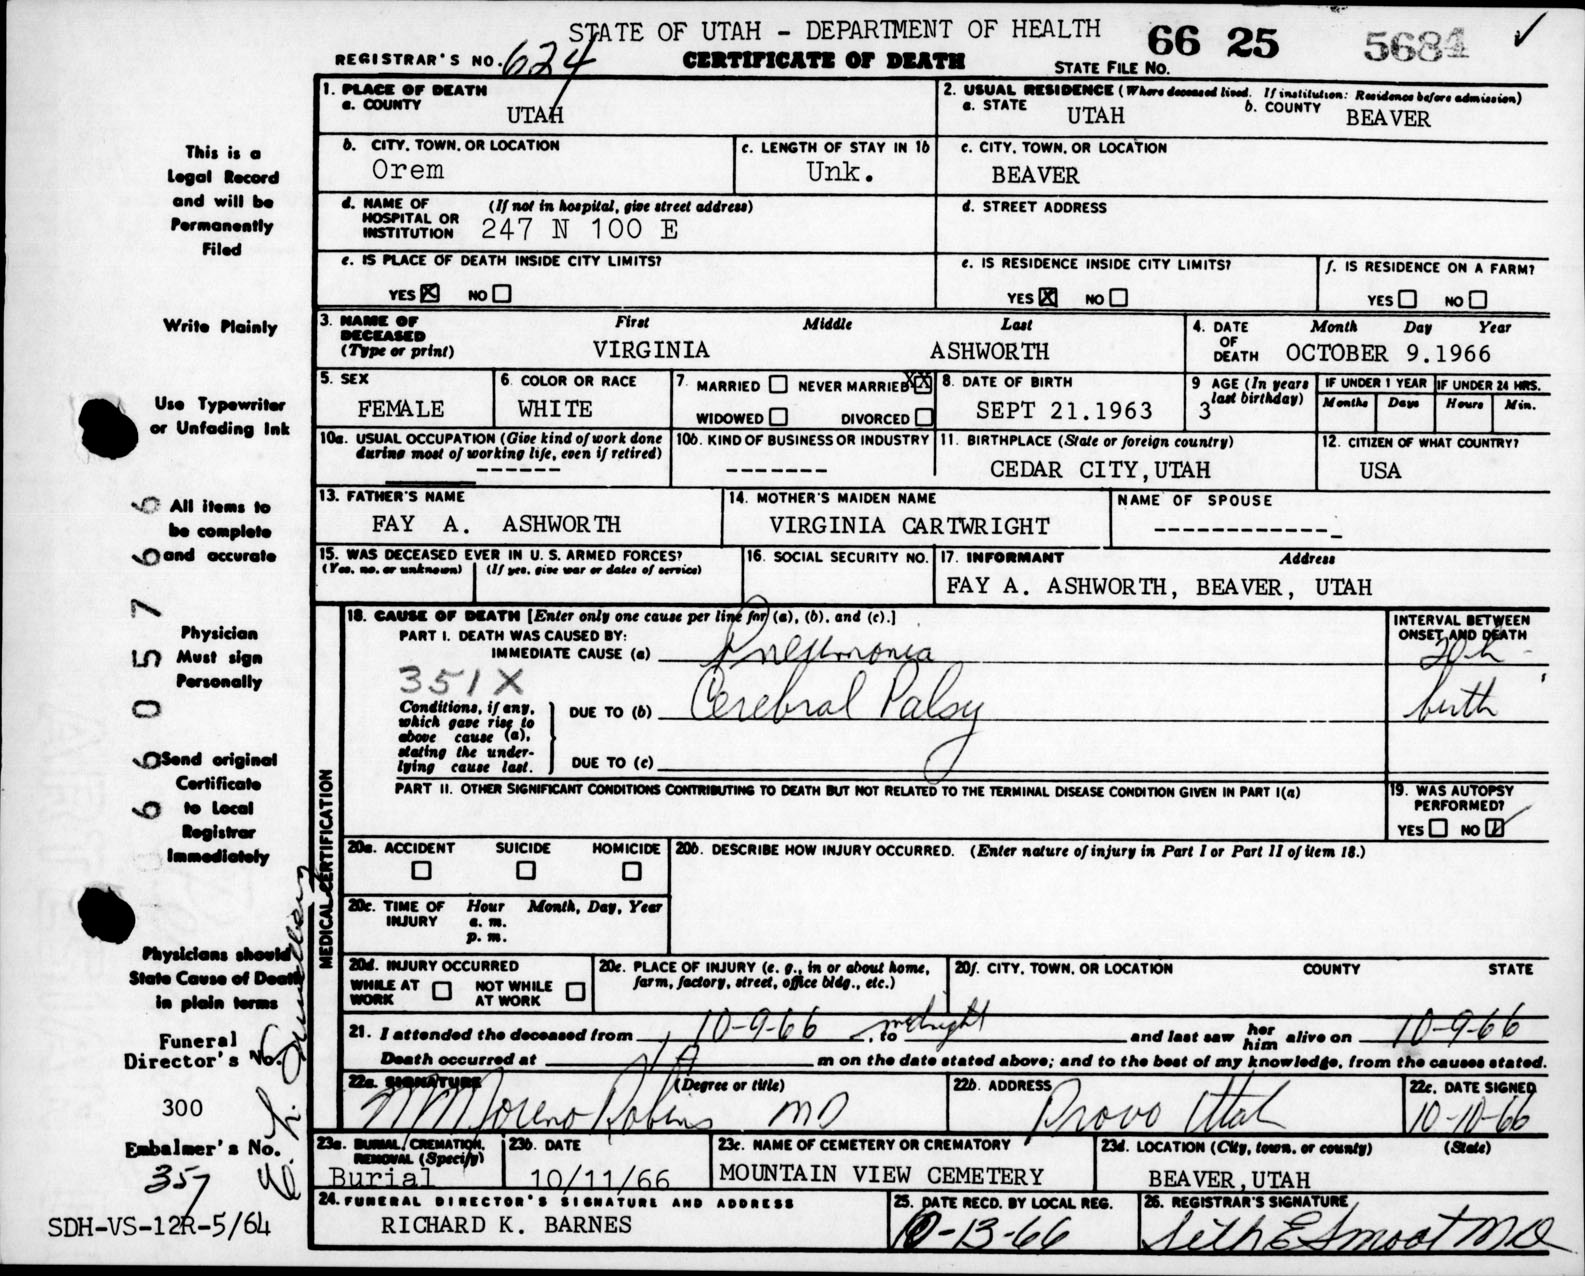 STATE OF UTAH - DEPARTMENT OF HEALTH
CERTIFICATE OF DEATH
REGISTRAR'S NO. 624
STATE FILE NO. 66 25 5684 ✓
This is a
Legal Record
and will be
Permanently
Filed
Write Plainly
Use Typewriter
or Unfading Ink
All items to
be complete
and accurate
Physician
Must sign
Personally
Send original
Certificate
to Local
Registrar
Immediately
Physicians should
State Cause of Death
in plain terms
Funeral
Director's No.
300
Embalmer's No.
357
SDH-VS-12R-5/64
6605766
1. PLACE OF DEATH
a. COUNTY
UTAH
2. USUAL RESIDENCE (Where deceased lived. If institution: Residence before admission)
a. STATE UTAH b. COUNTY BEAVER
b. CITY, TOWN, OR LOCATION
Orem
c. LENGTH OF STAY IN 1b
Unk.
c. CITY, TOWN, OR LOCATION
BEAVER
d. NAME OF HOSPITAL OR INSTITUTION (If not in hospital, give street address)
247 N 100 E
d. STREET ADDRESS
e. IS PLACE OF DEATH INSIDE CITY LIMITS?
YES ☒ NO ☐
e. IS RESIDENCE INSIDE CITY LIMITS?
YES ☒ NO ☐
f. IS RESIDENCE ON A FARM?
YES ☐ NO ☐
3. NAME OF DECEASED (Type or print)
First Middle Last
VIRGINIA ASHWORTH
4. DATE OF DEATH
Month Day Year
OCTOBER 9.1966
5. SEX
FEMALE
6. COLOR OR RACE
WHITE
7. MARRIED ☐ NEVER MARRIED ☒
WIDOWED ☐ DIVORCED ☐
8. DATE OF BIRTH
SEPT 21.1963
9 AGE (In years last birthday)
3
IF UNDER 1 YEAR
Months Days
IF UNDER 24 HRS.
Hours Min.
10a. USUAL OCCUPATION (Give kind of work done during most of working life, even if retired)
------
10b. KIND OF BUSINESS OR INDUSTRY
-------
11. BIRTHPLACE (State or foreign country)
CEDAR CITY,UTAH
12. CITIZEN OF WHAT COUNTRY?
USA
13. FATHER'S NAME
FAY A. ASHWORTH
14. MOTHER'S MAIDEN NAME
VIRGINIA CARTWRIGHT
NAME OF SPOUSE
-------------
15. WAS DECEASED EVER IN U. S. ARMED FORCES?
(Yes, no, or unknown) (If yes, give war or dates of service)
16. SOCIAL SECURITY NO.
17. INFORMANT Address
FAY A. ASHWORTH, BEAVER, UTAH
MEDICAL CERTIFICATION
18. CAUSE OF DEATH [Enter only one cause per line for (a), (b), and (c).]
PART I. DEATH WAS CAUSED BY:
IMMEDIATE CAUSE (a) Pneumonia
351X
Conditions, if any, which gave rise to above cause (a), stating the underlying cause last.
DUE TO (b) Cerebral Palsy
DUE TO (c)
INTERVAL BETWEEN ONSET AND DEATH
20 h
birth
PART II. OTHER SIGNIFICANT CONDITIONS CONTRIBUTING TO DEATH BUT NOT RELATED TO THE TERMINAL DISEASE CONDITION GIVEN IN PART I(a)
19. WAS AUTOPSY PERFORMED?
YES ☐ NO ☑
20a. ACCIDENT SUICIDE HOMICIDE
☐ ☐ ☐
20b. DESCRIBE HOW INJURY OCCURRED. (Enter nature of injury in Part I or Part II of item 18.)
20c. TIME OF INJURY Hour Month, Day, Year
a. m.
p. m.
20d. INJURY OCCURRED
WHILE AT WORK ☐ NOT WHILE AT WORK ☐
20e. PLACE OF INJURY (e. g., in or about home, farm, factory, street, office bldg., etc.)
20f. CITY, TOWN, OR LOCATION COUNTY STATE
21. I attended the deceased from 10-9-66, to midnight and last saw her him alive on 10-9-66
Death occurred at m on the date stated above; and to the best of my knowledge, from the causes stated.
22a. SIGNATURE (Degree or title)
Moreno Robins MD
22b. ADDRESS
Provo Utah
22c. DATE SIGNED
10-10-66
23a. BURIAL, CREMATION, REMOVAL (Specify)
Burial
23b. DATE
10/11/66
23c. NAME OF CEMETERY OR CREMATORY
MOUNTAIN VIEW CEMETERY
23d. LOCATION (City, town, or county) (State)
BEAVER,UTAH
24. FUNERAL DIRECTOR'S SIGNATURE AND ADDRESS
RICHARD K. BARNES
25. DATE RECD. BY LOCAL REG.
10-13-66
26. REGISTRAR'S SIGNATURE
Seth E Smoot MD